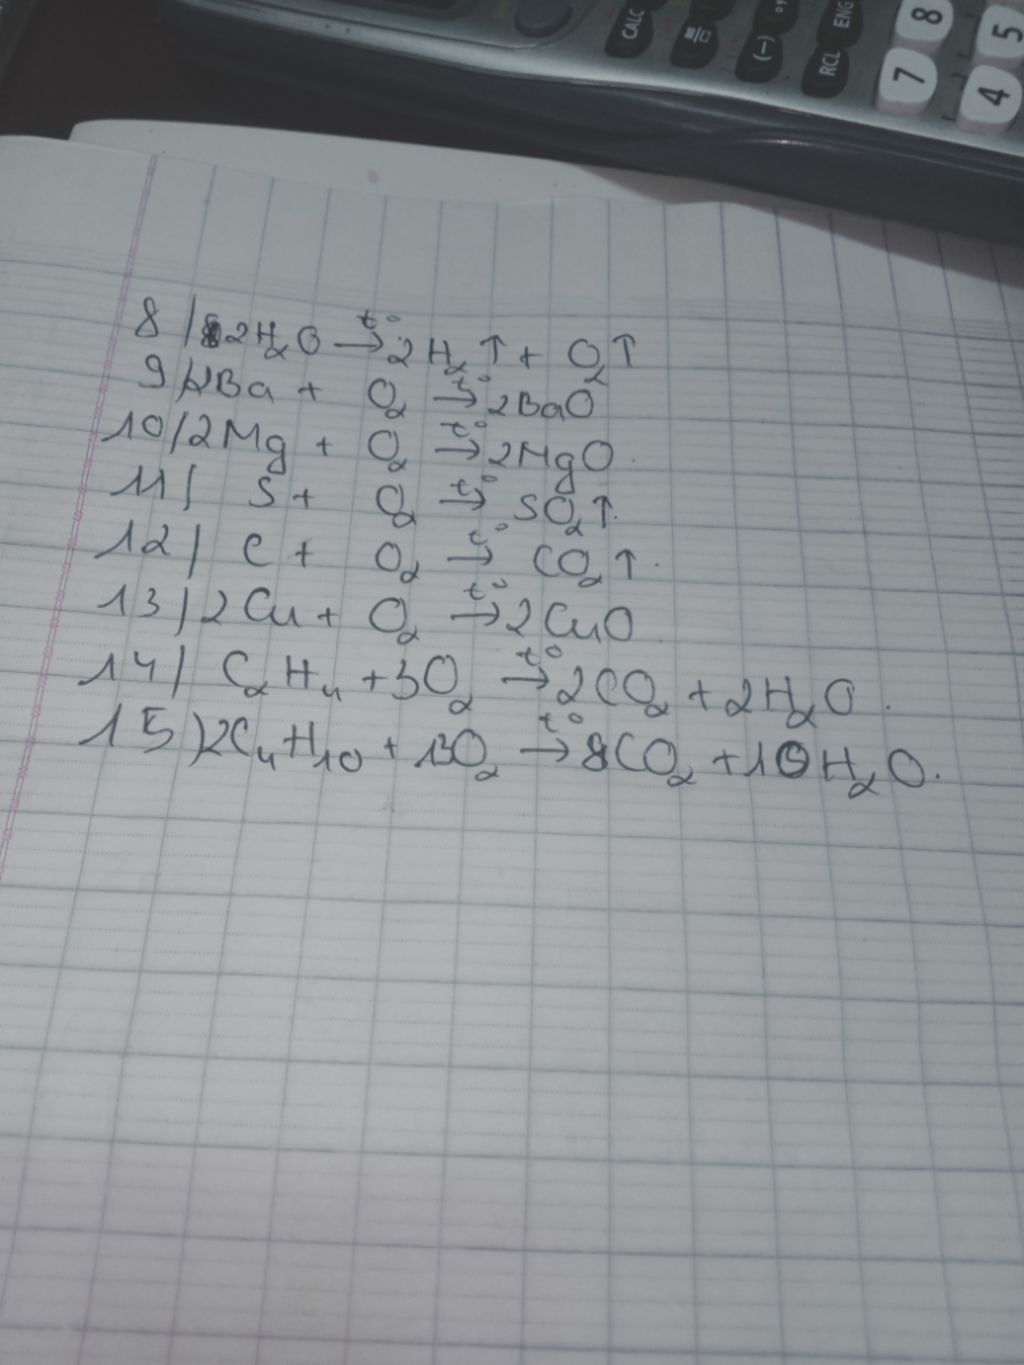 CALC (-) RCL ENG 7 8 4 5
8/ 2H₂O t°→ 2H₂↑ + O₂↑
9/ 2Ba + O₂ t°→ 2BaO
10/ 2Mg + O₂ t°→ 2MgO.
11/ S + O₂ t°→ SO₂↑.
12/ C + O₂ t°→ CO₂↑.
13/ 2Cu + O₂ t°→ 2CuO
14/ C₂H₄ + 3O₂ t°→ 2CO₂ + 2H₂O.
15) 2C₄H₁₀ + 13O₂ t°→ 8CO₂ + 10H₂O.